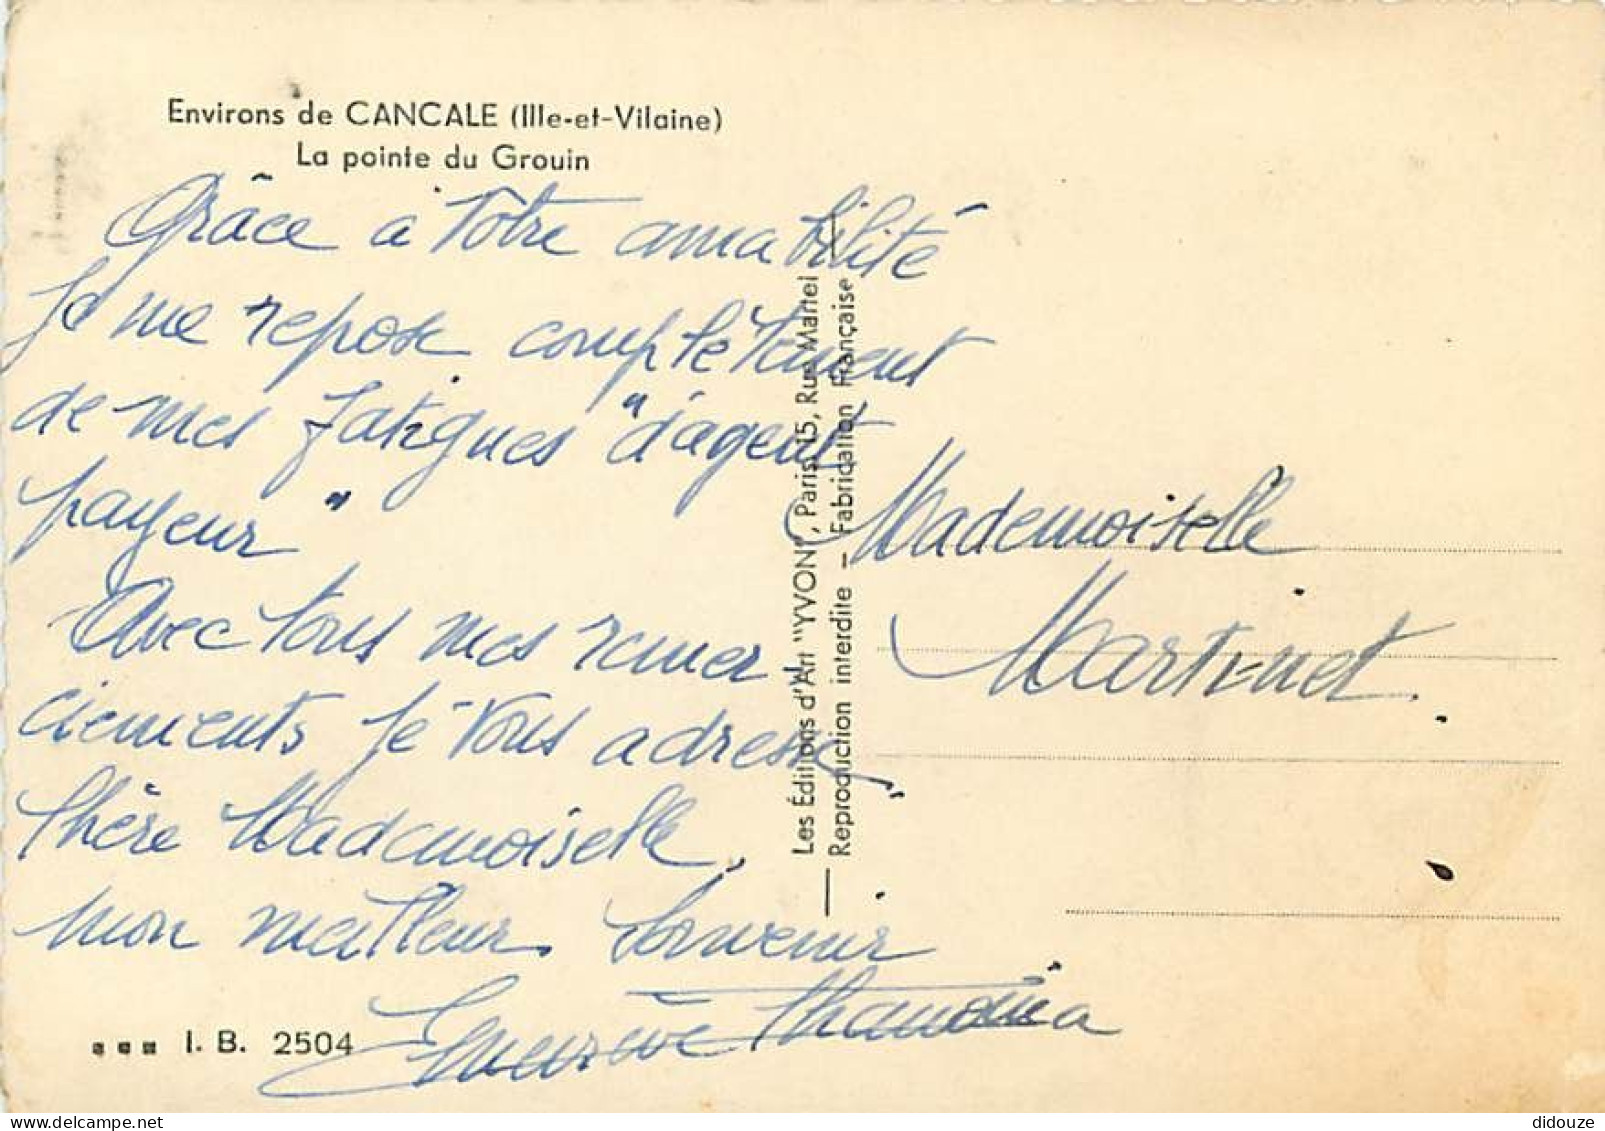 Environs de CANCALE (Ille-et-Vilaine)
La pointe du Grouin
Grâce à Votre amabilité
Je me repose complètement
de mes fatigues "d'agent
payeur"
Avec tous mes remer
ciements je vous adresse
Chère Mademoiselle,
mon meilleur souvenir
Geneviève
I. B. 2504
Les Éditions d'Art "YVON", Paris-15, Rue Martel
Reproduction interdite — Fabrication Française
Mademoiselle
Martinet.
didouze